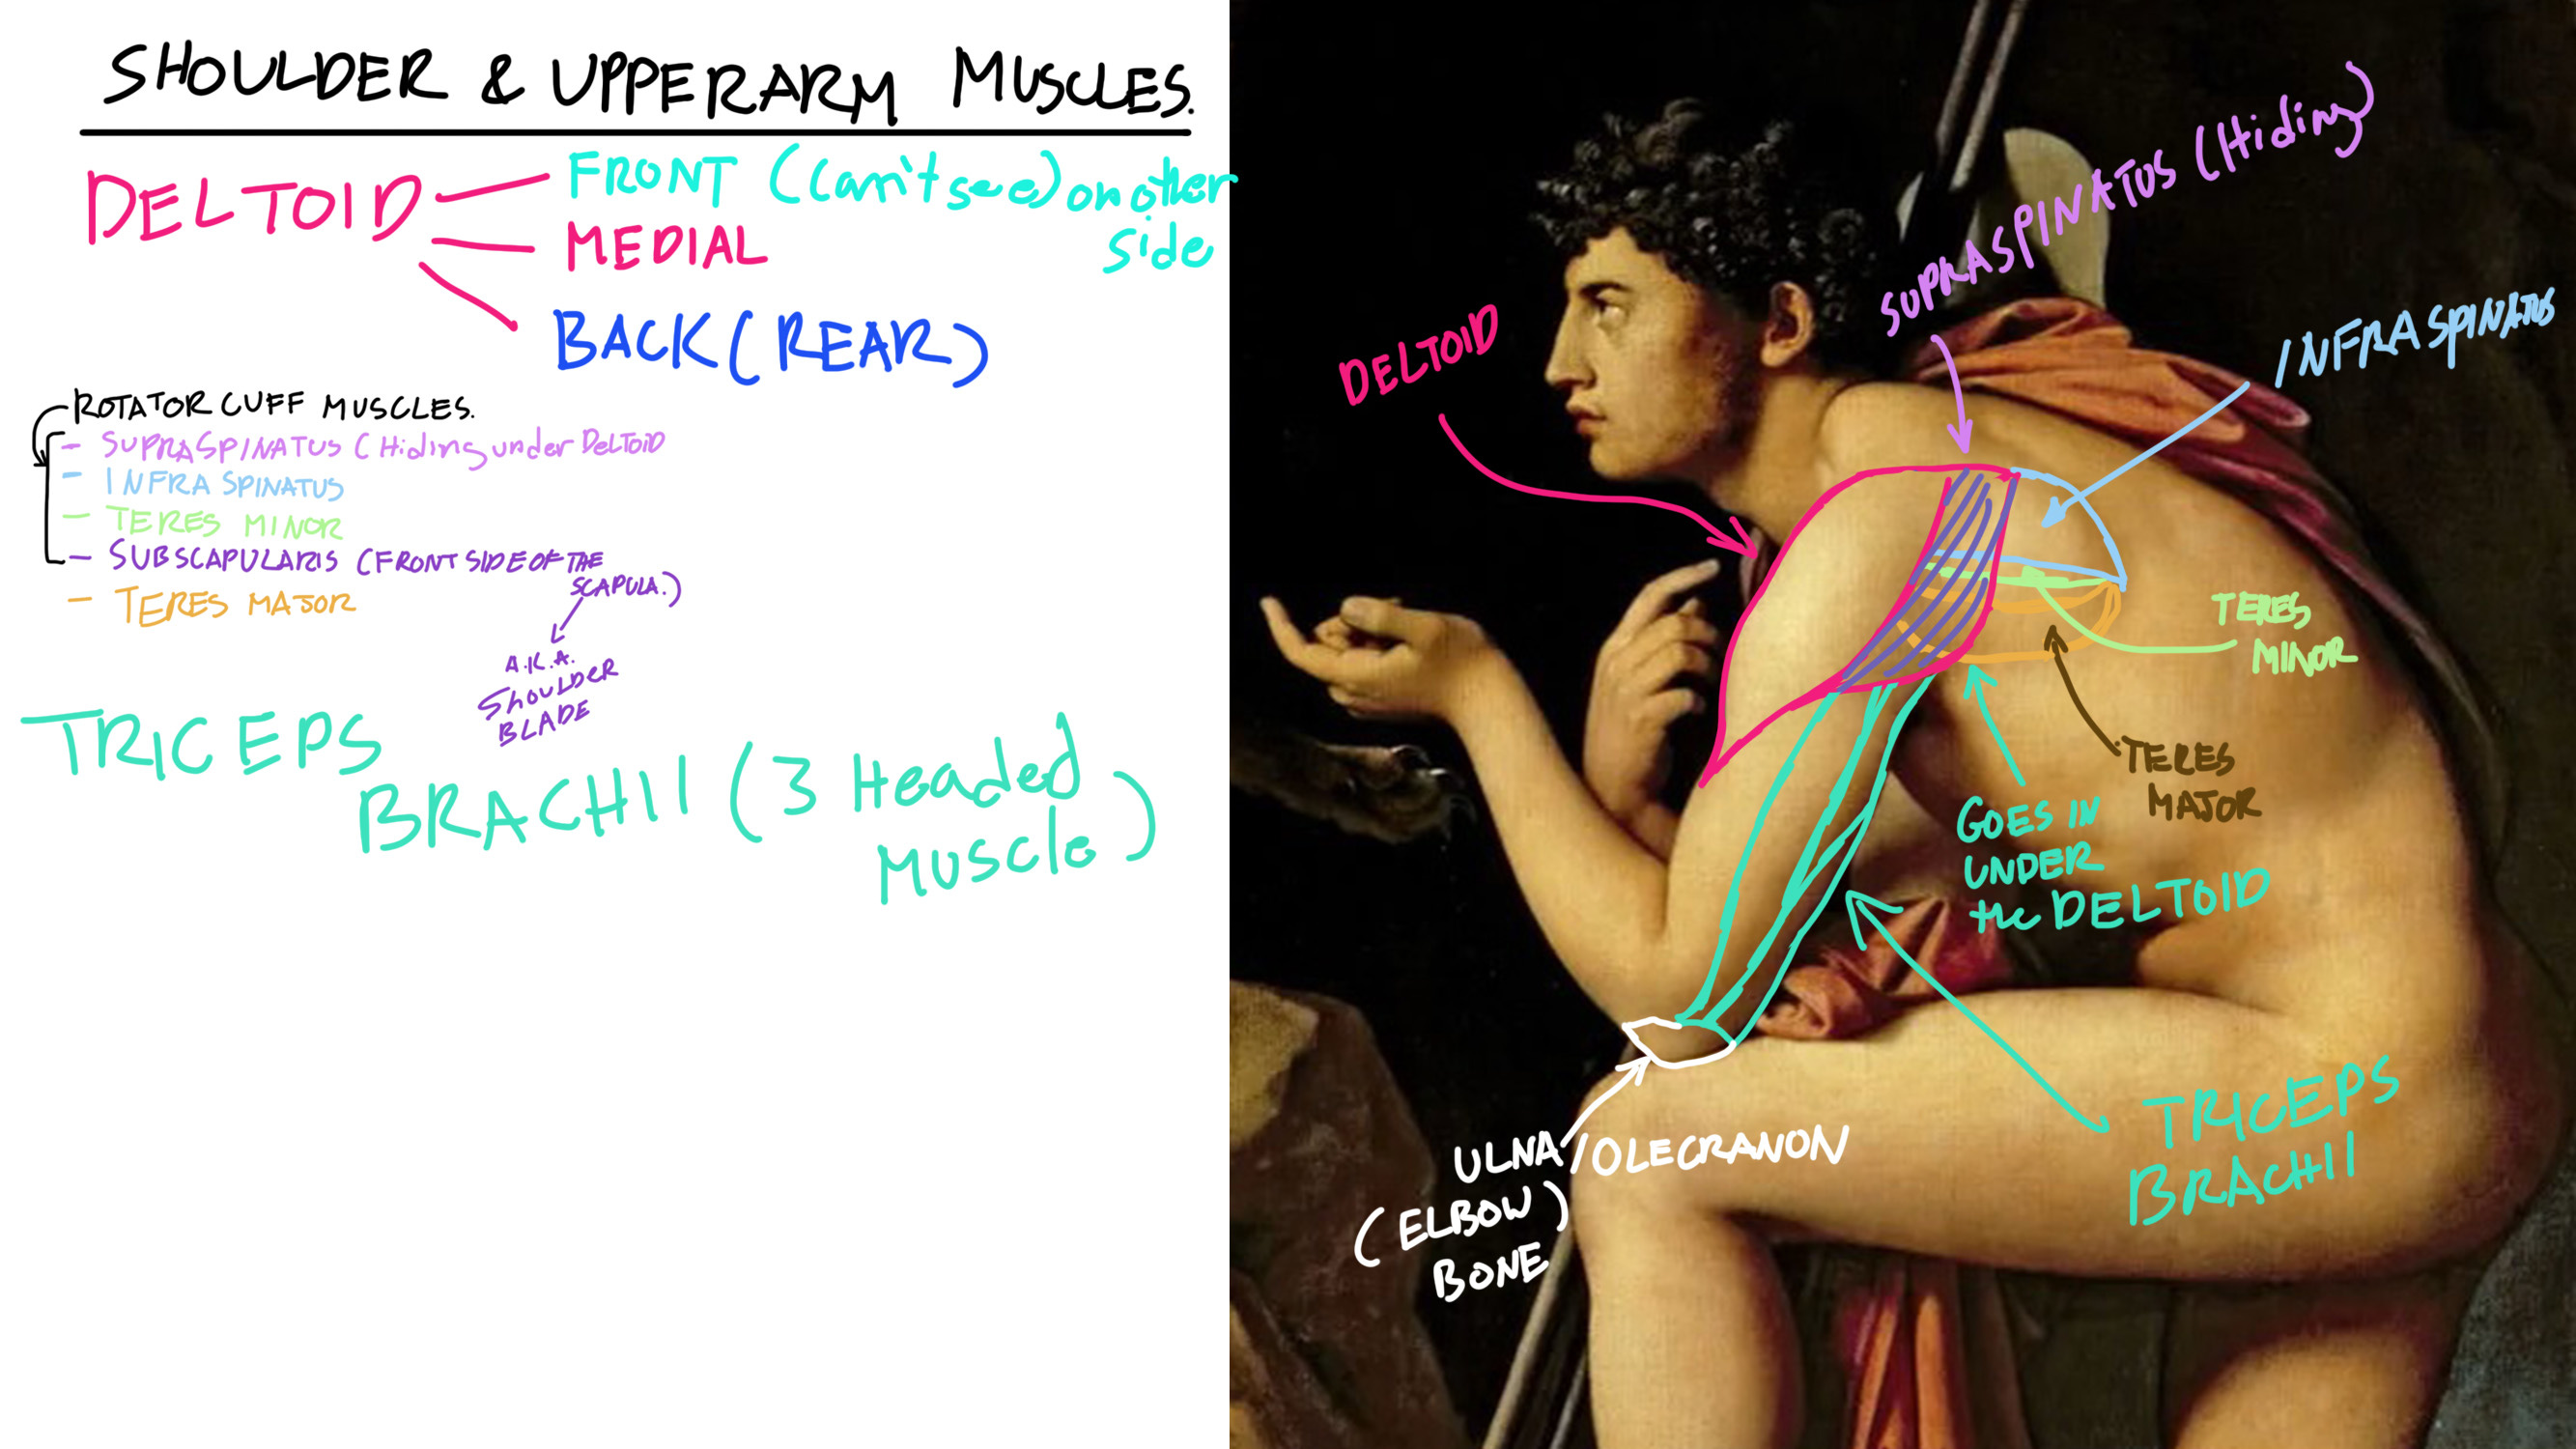 SHOULDER & UPPERARM MUSCLES.
DELTOID
FRONT (Can't see) on other
side
MEDIAL
BACK (REAR)
ROTATOR CUFF MUSCLES.
- SUPRASPINATUS (Hiding under DELTOID
- INFRA SPINATUS
- TERES MINOR
- SUBSCAPULARIS (FRONT SIDE OF THE
SCAPULA.)
- TERES MAJOR
A.K.A.
SHOULDER
BLADE
TRICEPS
BRACHII (3 Headed
MUSCLE)
DELTOID
SUPRASPINATUS (Hiding)
INFRA SPINATUS
TERES
MINOR
TERES
MAJOR
GOES IN
UNDER
the DELTOID
TRICEPS
BRACHII
ULNA/OLECRANON
(ELBOW)
BONE